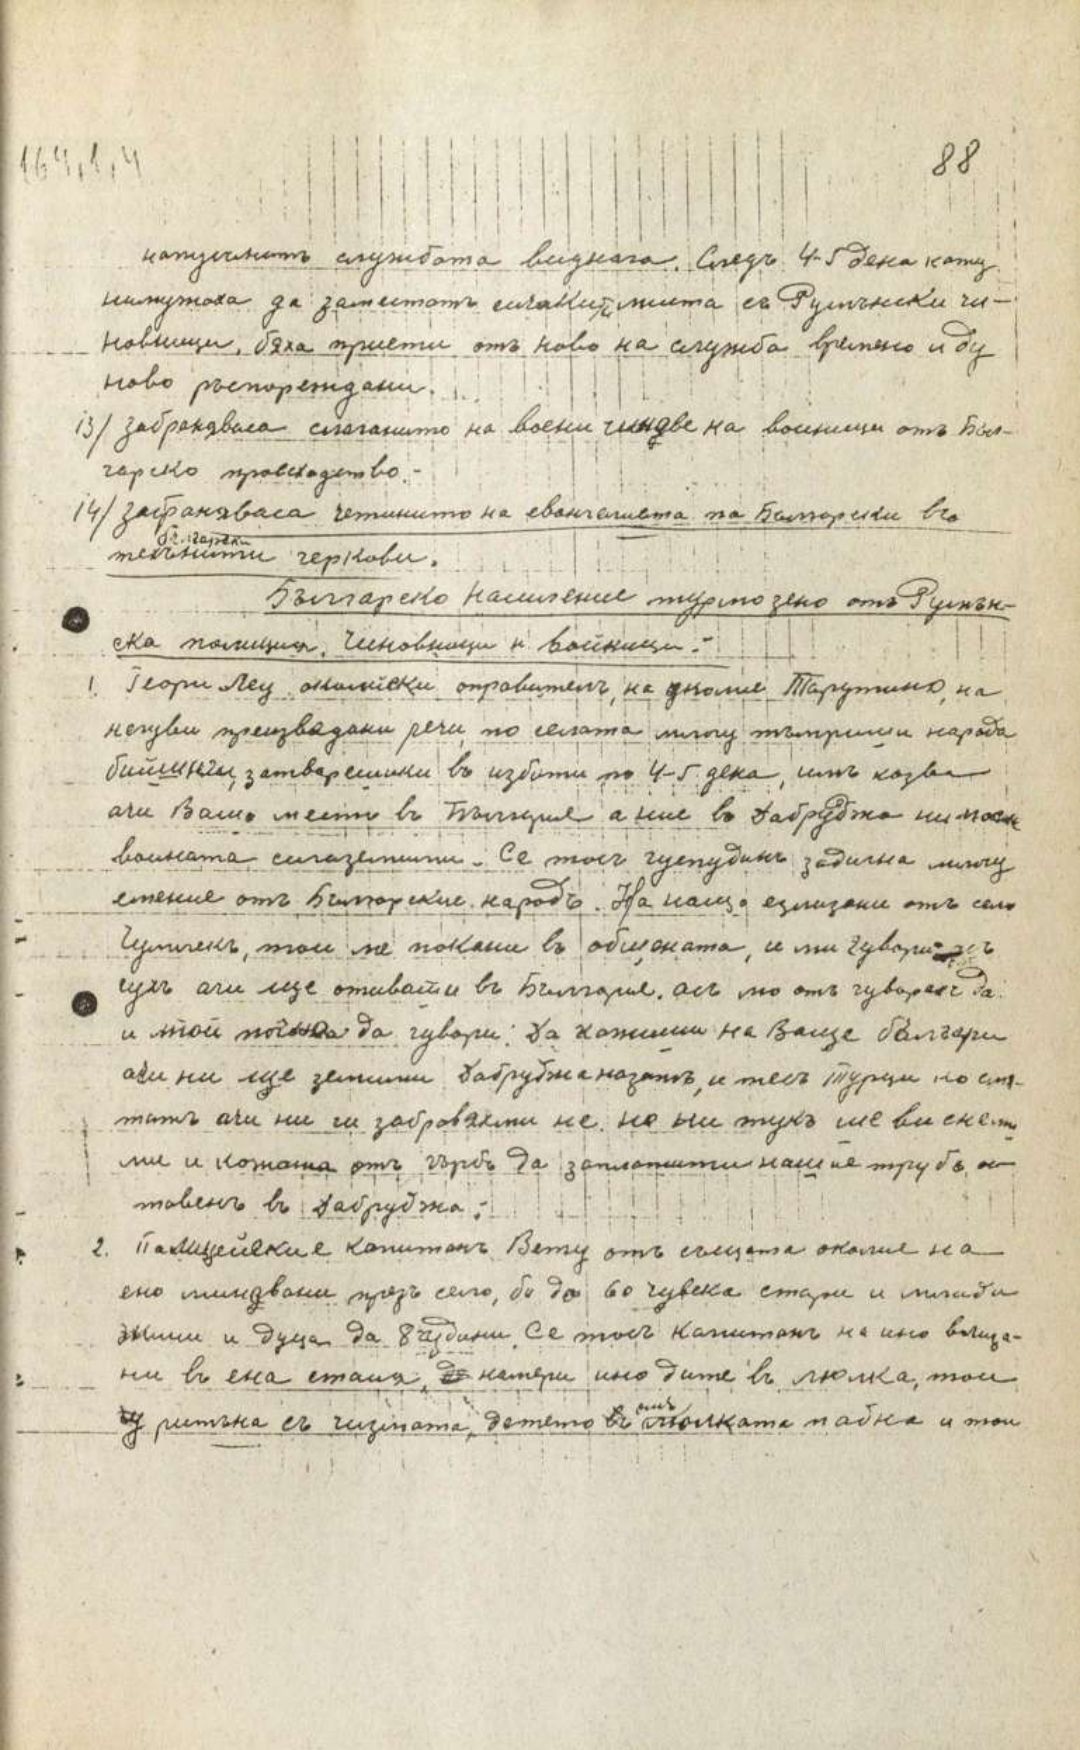 164,1,4
88
напуснатъ службата виднага. Следъ 4-5 дена кату
нимужаха да заместатъ сичкити места съ Румънски чи-
новници, бяха приети отъ ново на служба времено и ду
ново распореждани.
13/ забраняваса слаганито на воени чинове на воиници отъ Бъл-
гарско произходство.-
14/ забраняваса четинито на евангелиета на Български въ
Български
техънити черкови.
Българско население турмозено отъ Румън-
ска полиция, чиновници и войници:-
1. Георги Леу околиски оправителъ, на околие Тарутино, на
негуви произвадани речи по селата многу тъприши народа
бийшши, затварешики въ избити по 4-5 дена, имъ казва
ачи Вашо место въ България а ние въ Дабруджа ни
воината сигаземиши. Се тосъ гуспудинъ задигна многу
емение отъ Българские народъ. На нащо езлизани отъ село
Чумлекъ, той ме покани въ общената, и ми гувори
ачи ще отивати въ България. асъ мо отъ гуварехъ да
и той да гувори: Да кажиши на Ваще българи
ачи ни ще земиши Дабруджа назатъ, и тесъ Турци
татъ ачи ни ги забровяеми не. не ни тукъ ше ви
ми и кожата отъ гърбъ да заплатити нашие трубъ ос-
тавенъ въ Дабруджа:-
2. Палицейские капитанъ Вету отъ същата околие на
ено минувани презъ село, би до 60 чувека стари и млади
жини и дуца да 8 гудини. Се тосъ капитанъ на ино влиза-
ни въ ена стаия, намери ино дите въ люлка, той
отъ
у ритъна съ чизмата, детето люлката падна и той